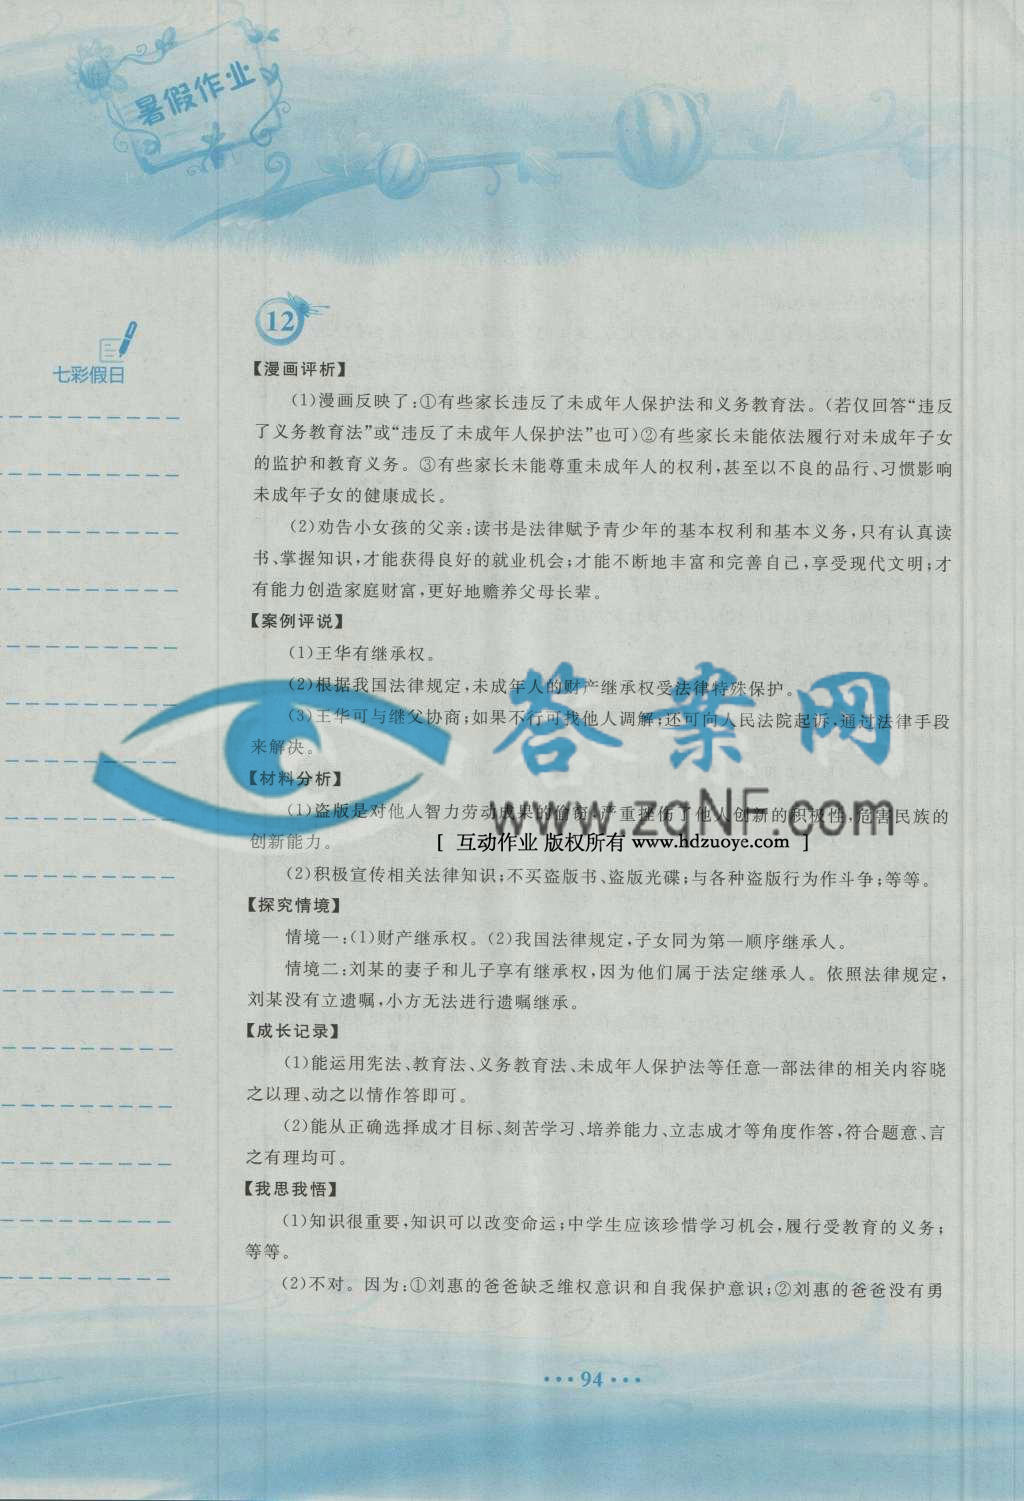 暑假作业
七彩假日
12
【漫画评析】
(1)漫画反映了:①有些家长违反了未成年人保护法和义务教育法。(若仅回答“违反
了义务教育法”或“违反了未成年人保护法”也可)②有些家长未能依法履行对未成年子女
的监护和教育义务。③有些家长未能尊重未成年人的权利,甚至以不良的品行、习惯影响
未成年子女的健康成长。
(2)劝告小女孩的父亲:读书是法律赋予青少年的基本权利和基本义务,只有认真读
书、掌握知识,才能获得良好的就业机会;才能不断地丰富和完善自己,享受现代文明;才
有能力创造家庭财富,更好地赡养父母长辈。
【案例评说】
(1)王华有继承权。
(2)根据我国法律规定,未成年人的财产继承权受法律特殊保护。
(3)王华可与继父协商;如果不行可找他人调解;还可向人民法院起诉,通过法律手段
来解决。
答案网
www.zqNF.com
【材料分析】
(1)盗版是对他人智力劳动成果的偷窃,严重挫伤了他人创新的积极性,危害民族的
创新能力。
[ 互动作业 版权所有 www.hdzuoye.com ]
(2)积极宣传相关法律知识;不买盗版书、盗版光碟;与各种盗版行为作斗争;等等。
【探究情境】
情境一:(1)财产继承权。(2)我国法律规定,子女同为第一顺序继承人。
情境二:刘某的妻子和儿子享有继承权,因为他们属于法定继承人。依照法律规定,
刘某没有立遗嘱,小方无法进行遗嘱继承。
【成长记录】
(1)能运用宪法、教育法、义务教育法、未成年人保护法等任意一部法律的相关内容晓
之以理、动之以情作答即可。
(2)能从正确选择成才目标、刻苦学习、培养能力、立志成才等角度作答,符合题意、言
之有理均可。
【我思我悟】
(1)知识很重要,知识可以改变命运;中学生应该珍惜学习机会,履行受教育的义务;
等等。
(2)不对。因为:①刘惠的爸爸缺乏维权意识和自我保护意识;②刘惠的爸爸没有勇
···94···